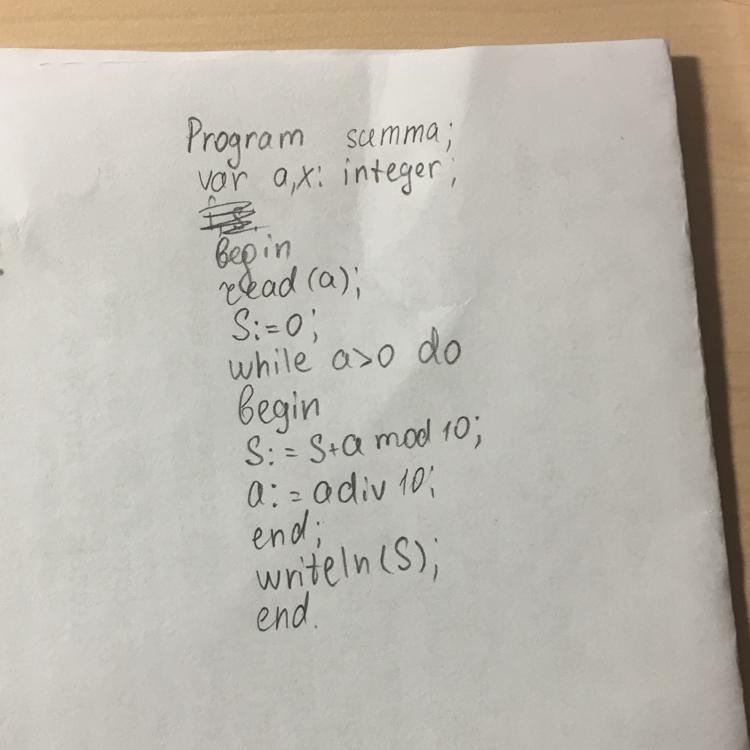 Program summa;
var a,x: integer;
Begin
read(a);
S:=0;
while a>0 do
begin
S:= S+a mod 10;
a:= a div 10;
end;
writeln(S);
end.